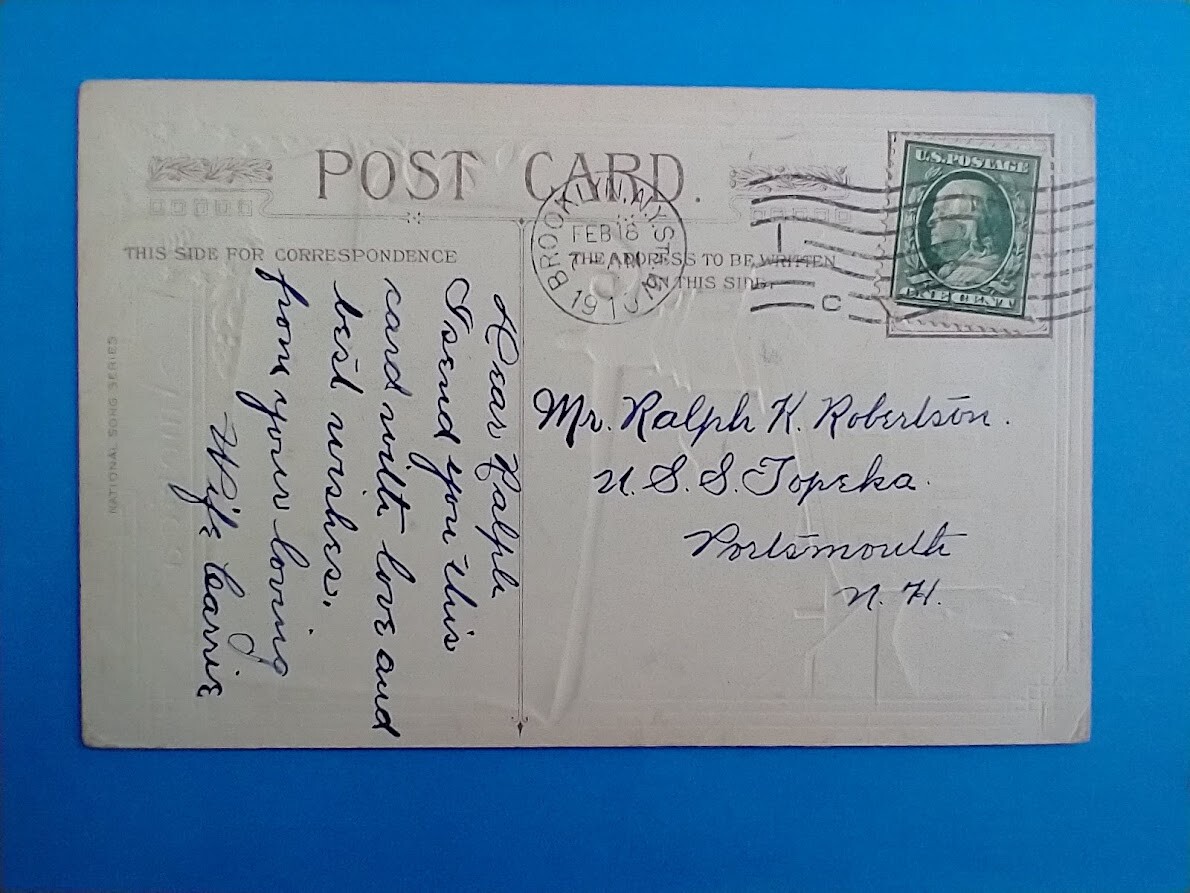 POST CARD.
THIS SIDE FOR CORRESPONDENCE
THE ADDRESS TO BE WRITTEN
ON THIS SIDE.
BROOKLYN, N.Y. STA.
FEB 18
7 - AM
1910
C
U.S. POSTAGE
ONE CENT
NATIONAL SONG SERIES
Dear Ralph
I send you this
card with love and
best wishes.
from your loving
Wife Carrie
Mr. Ralph K. Robertson.
U.S.S. Topeka.
Portsmouth
N. H.